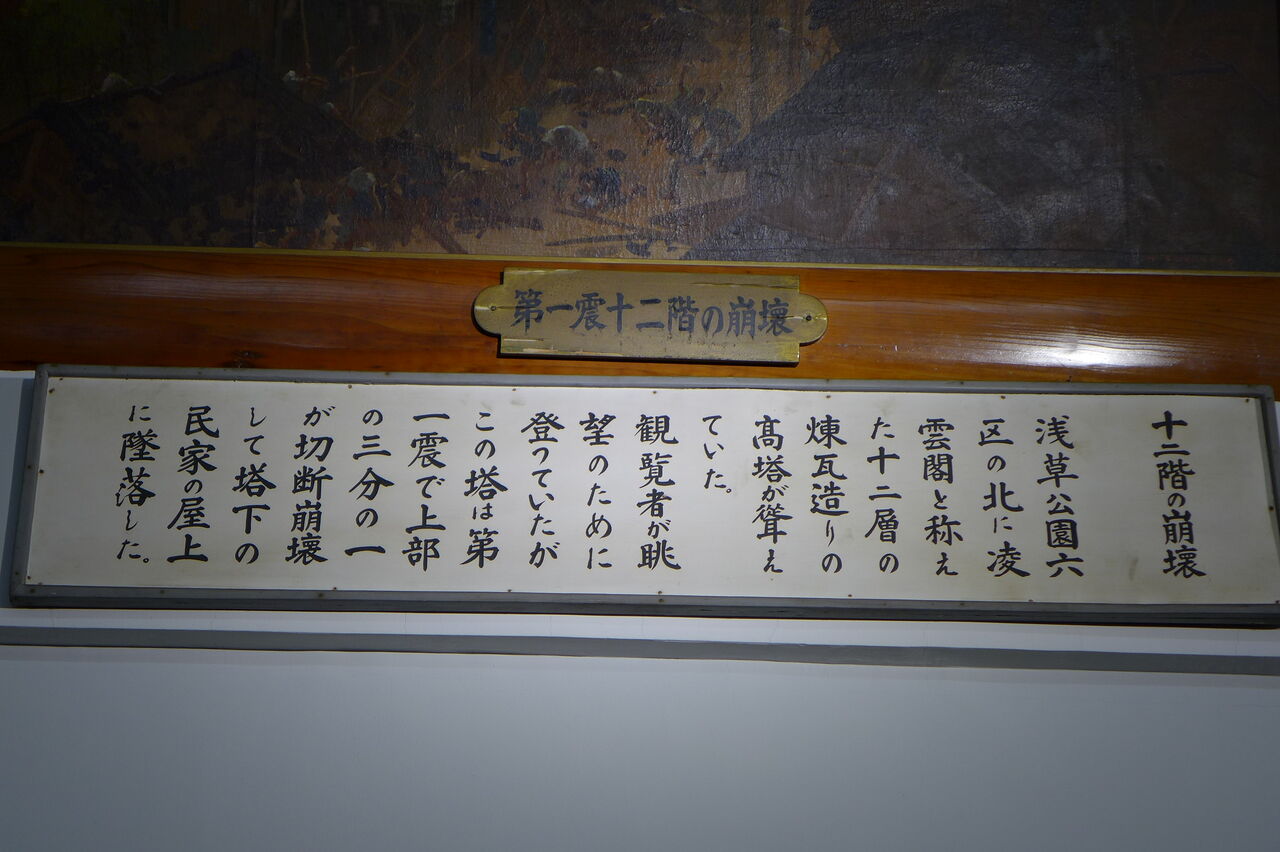 第一震十二階の崩壊
十二階の崩壊
浅草公園六
区の北に凌
雲閣と称え
た十二層の
煉瓦造りの
髙塔が聳え
ていた。
観覧者が眺
望のために
登っていたが
この塔は第
一震で上部
の三分の一
が切断崩壊
して塔下の
民家の屋上
に墜落した。